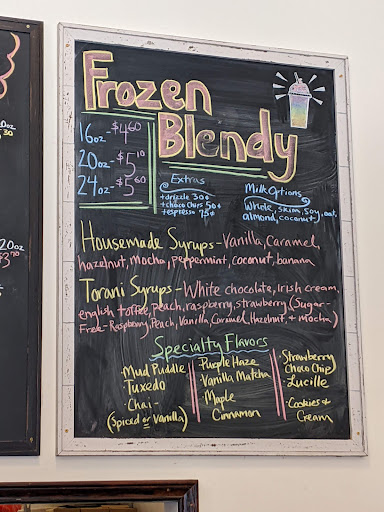 Frozen
Blendy
16oz - $4.60
20oz - $5.10
24oz - $5.60
Extras
+drizzle 30¢
+choco chips 50¢
+espresso 75¢
Milk Options
Whole, skim, soy, oat,
almond, coconut
Housemade Syrups - Vanilla, Caramel,
hazelnut, mocha, peppermint, coconut, banana
Torani Syrups - White chocolate, Irish cream,
english toffee, peach, raspberry, strawberry (Sugar-
Free - Raspberry, Peach, Vanilla, Caramel, Hazelnut, + Mocha)
Specialty Flavors
- Mud Puddle
Tuxedo
Chai -
(Spiced or Vanilla)
- Purple Haze
Vanilla Matcha
Maple
Cinnamon
Strawberry
Choco Chip
- Lucille
- Cookies &
Cream
20oz